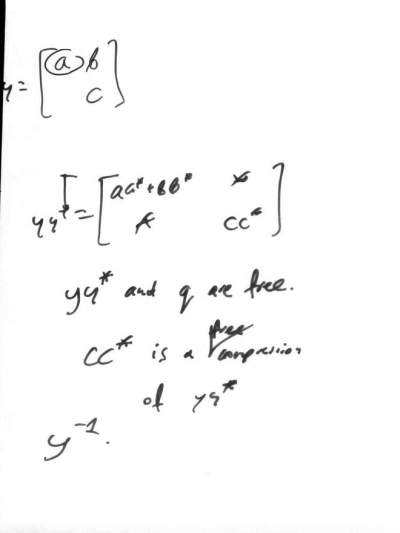 y = [ a b
c ]
yy* = [ aa*+bb* *
* cc* ]
yy* and q are free.
cc* is a free compression
of yy*
y⁻¹.